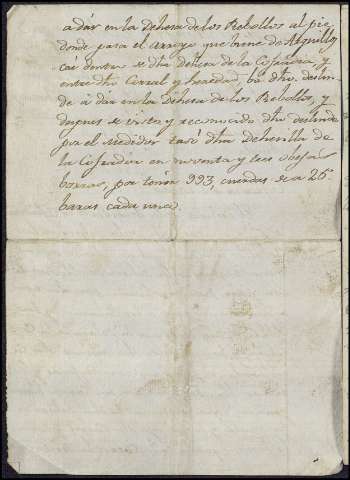 a dár en la Dehesa de los Rebollos al pie
donde pasa el arroyo que biene de
cai dentro de dha dehesa de la Cofadria, y
entre dho Corral y heredad, bá dho deslin-
de á dár en la Dehesa de los Rebollos, y
despues de visto y reconocido dho deslinde
por el Medidor tasó dha Dehesilla de
la Cofradia en noventa y tres obejas
borras, por tener 993, cuerdas de a 25
baras cada una.